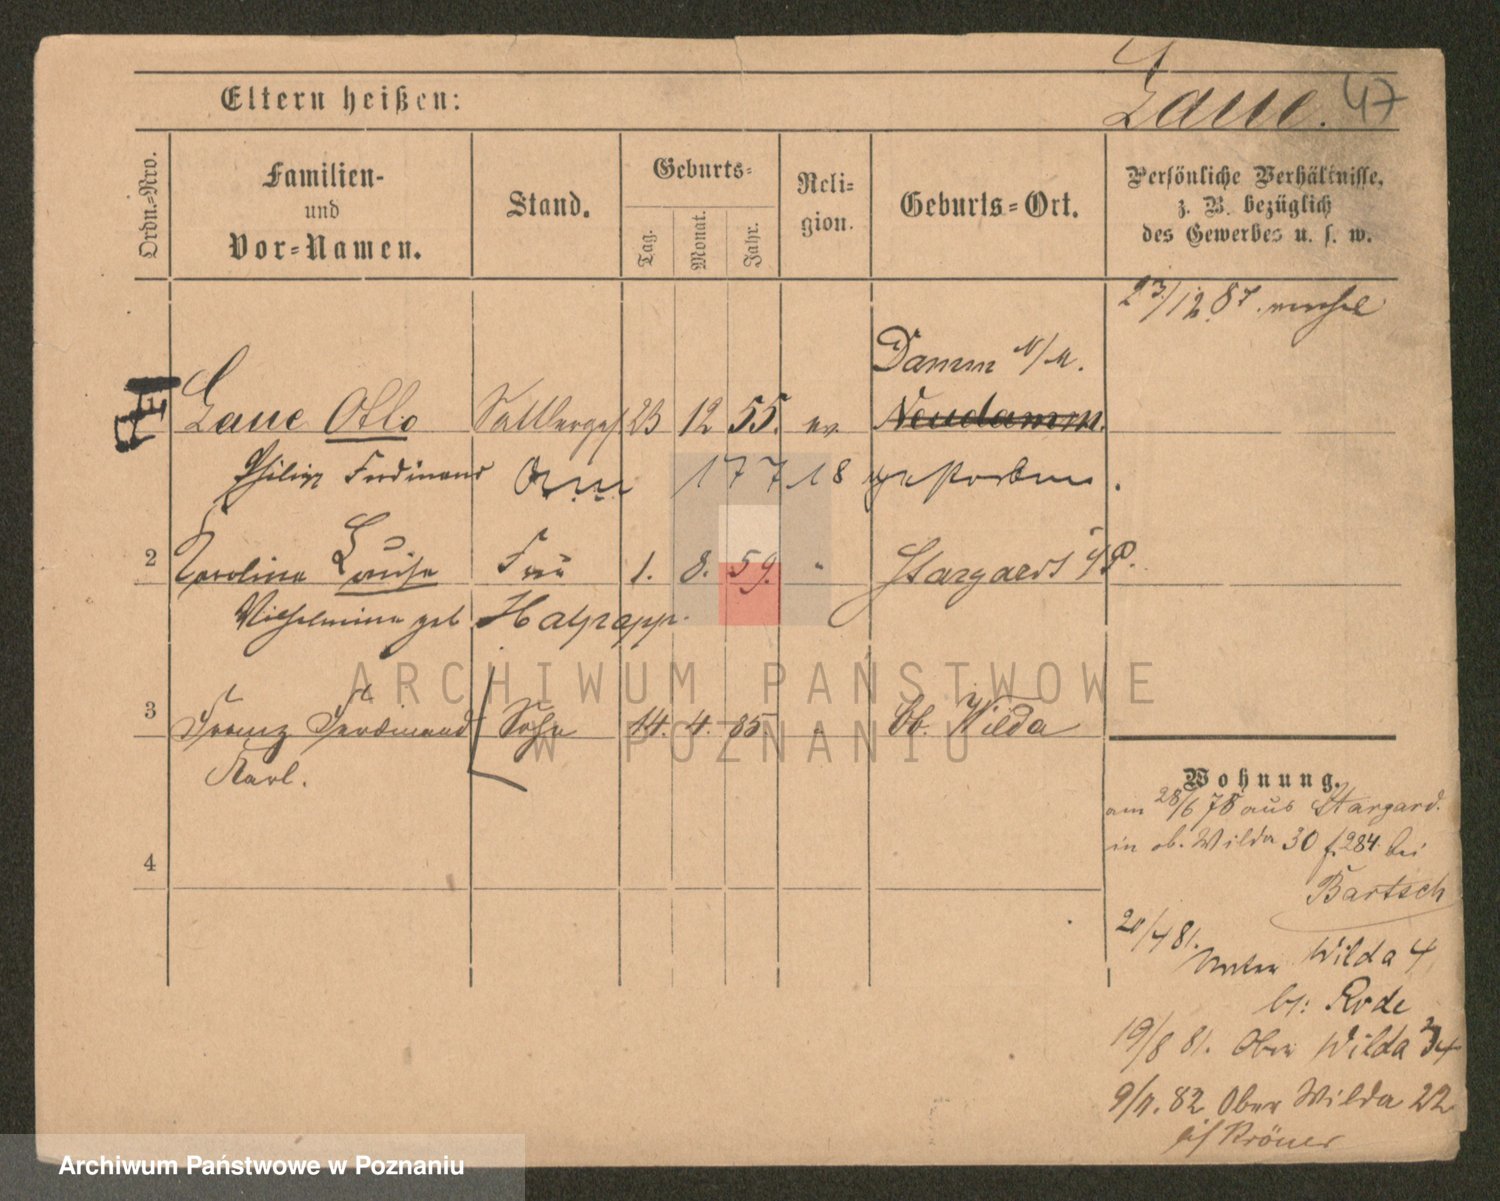 Eltern heißen:
Laue. 47
Ordn.-Nro.
Familien-
und
Vor-Namen.
Stand.
Geburts-
Tag.
Monat.
Jahr.
Reli-
gion.
Geburts-Ort.
Persönliche Verhältnisse,
z. B. bezüglich
des Gewerbes u. s. w.
23/12 87.
Damm N/M.
Laue Otto Sattlerges. 23 12 55. ev Neudamm.
Philipp Ferdinand am 17 7 18 gestorben.
2 Karolina Louise Frau 1. 8. 59. " Stargard i/P.
Wilhelmine geb. Halpapp.
3 Franz Ferdinand Sohn 14. 4. 85. " Ob. Wilda
Karl.
4
Wohnung.
am 28/6 78 aus Stargard.
in ob. Wilda 30 f. 284. bei
Bartsch
20/4 81.
Unter Wilda 4
bei Rode
19/8 81. Ober Wilda 34
9/11. 82 Ober Wilda 22
Kröner
ARCHIWUM PAŃSTWOWE
W POZNANIU
Archiwum Państwowe w Poznaniu